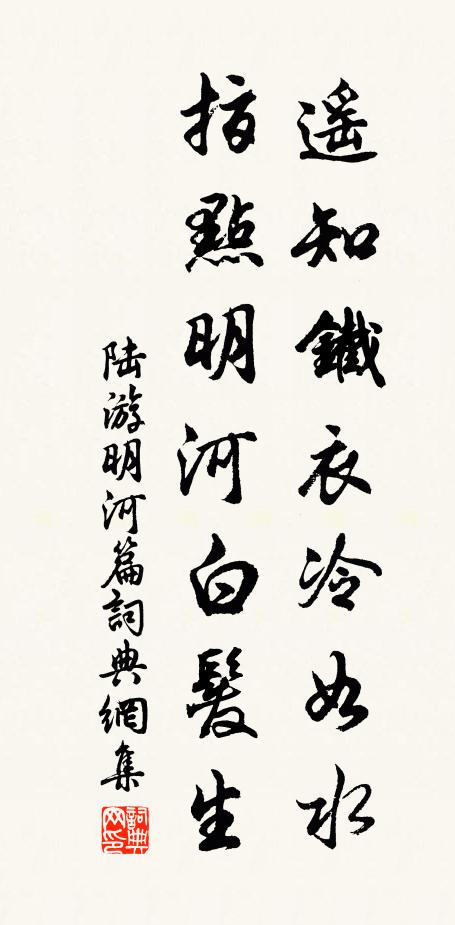 遥知鐵衣冷如水
指點明河白髮生
陸游明河篇詞典網集
詞典网印